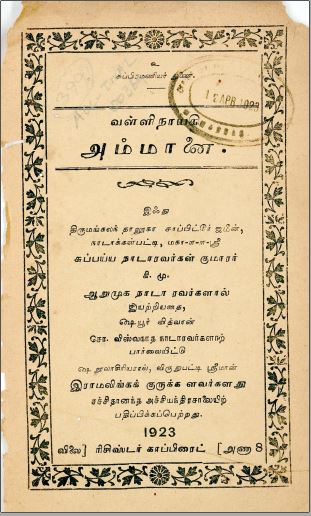 உ
சுப்பிரமணியர் துணை.
வள்ளிநாயகி
அம்மானை.
இஃது
திருமங்கலந் தாலூகா சாப்பிட்டூர் ஜமீன்,
நாடாக்கள்பட்டி, மகா-ள-ள-ஸ்ரீ
சுப்பய்ய நாடாரவர்கள் குமாரர்
ஆறுமுக நாடா ரவர்களால்
இயற்றியதை,
ஷையூர் வித்வான்
சோ. விஸ்வநாத நாடாரவர்களாற்
பார்வையிட்டு
ஷை நூலாசிரியரால், விருதுபட்டி ஸ்ரீமான்
இராமலிங்கக் குருக்க ளவர்களது
சச்சிதானந்த அச்சியந்திரசாலையிற்
பதிப்பிக்கப்பெற்றது.
1923
விலை] ரிஜிஸ்டர் காப்பிரைட் [அணா 8
APR
MADRAS